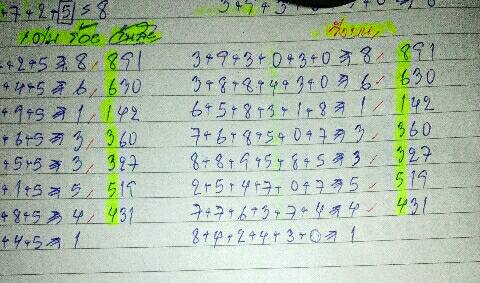 +7+2+5≤8
+2+5⇒8, 891 3+9+3+0+3+0⇒8, 891
+4+5⇒6, 630 3+8+8+4+3+0⇒6, 630
+9+5⇒1, 142 6+5+8+3+1+8⇒1, 142
+6+5⇒3, 360 7+6+8+5+0+7⇒3, 360
+5+5⇒3, 327 8+8+9+5+8+5⇒3, 327
+1+5⇒5, 519 2+5+4+7+0+7⇒5, 519
+8+5⇒4, 431 7+7+6+3+7+4⇒4, 431
+4+5⇒1 8+4+2+4+3+0⇒1